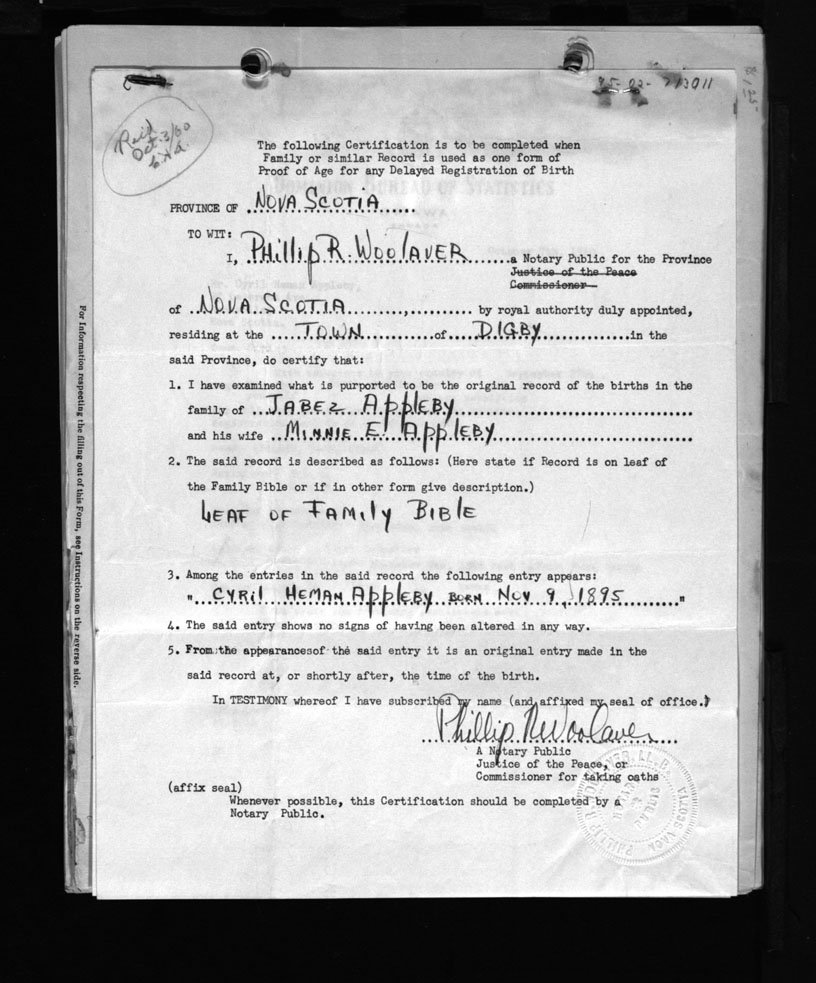 95-02-713011
Oct. 3/60
The following Certification is to be completed when
Family or similar Record is used as one form of
Proof of Age for any Delayed Registration of Birth
PROVINCE OF NOVA SCOTIA
TO WIT:
I, PHillip R. WOOlAVER a Notary Public for the Province
Justice of the Peace
Commissioner
of NOVA SCOTIA by royal authority duly appointed,
residing at the TOWN of DIGBY in the
said Province, do certify that:
1. I have examined what is purported to be the original record of the births in the
family of JABEZ ApplEBY
and his wife MINNIE E. ApplEBY
2. The said record is described as follows: (Here state if Record is on leaf of
the Family Bible or if in other form give description.)
LEAF OF FAMIlY BIBlE
3. Among the entries in the said record the following entry appears:
" CYRil HEMAN ApplEBY BORN NOV 9, 1895 "
4. The said entry shows no signs of having been altered in any way.
5. From the appearancesof the said entry it is an original entry made in the
said record at, or shortly after, the time of the birth.
In TESTIMONY whereof I have subscribed my name (and affixed my seal of office.)
Phillip R Woolaver
A Notary Public
Justice of the Peace, or
Commissioner for taking oaths
(affix seal)
Whenever possible, this Certification should be completed by a
Notary Public.
For Information respecting the filling out of this Form, see Instructions on the reverse side.